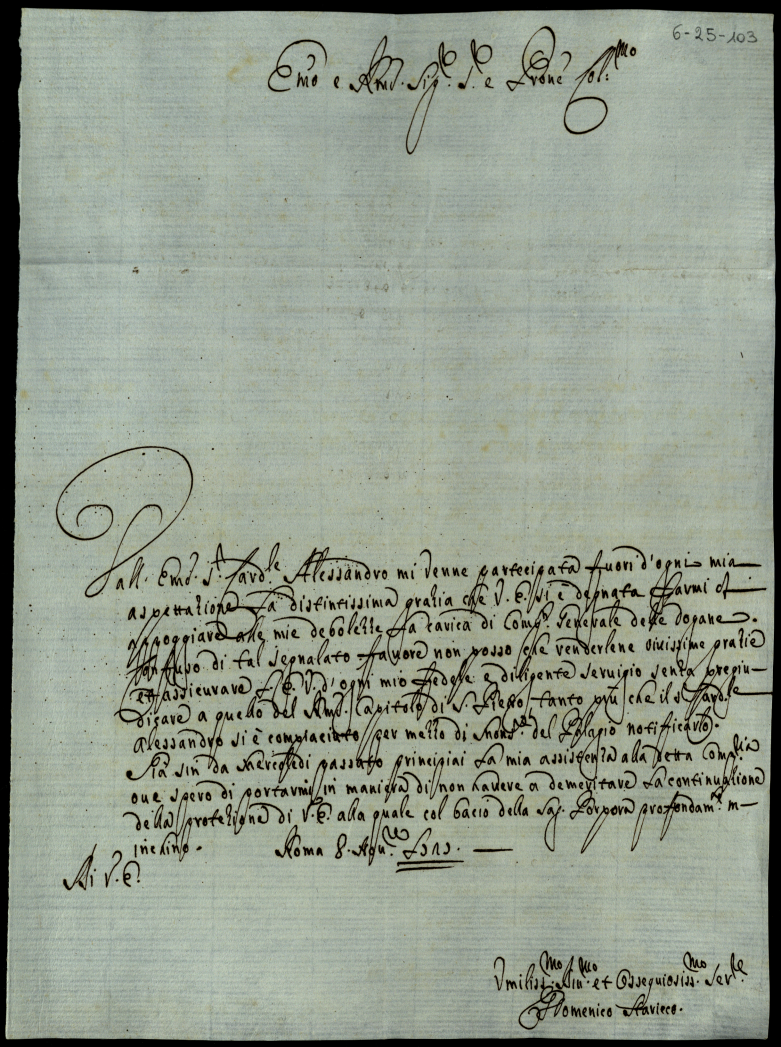 6-25-103
Emo e Rmo. Sig.re S.re e Prone Col:mo
Dall' Emo. S.r Card.le Alessandro mi venne partecipata fuori d'ogni mia
aspettazione la distintissima grazia che V. E. si è degnata farmi di
appoggiare alle mie debolezze la carica di Comp.ta Generale delle dogane.
Confuso di tal segnalato favore non posso che renderlene vivissime grazie
et assicurare l'E. V. d'ogni mio fedele e diligente servigio senza pregiu-
dizare a quello del Rmo. Capitolo di S. Pietro, tanto più che il S. Card.le
Alessandro si è compiaciuto per mezzo di Mons.re del Palagio notificarlo.
Già sin da Mercoledì passato principiai la mia assistenza alla detta Comp.ria
ove spero di portarmi in maniera di non havere a demeritare la continuazione
della protezione di V. E. alla quale col bacio della Sag. Porpora profondam.te m-
inchino. Roma 8.
Di V. E.
Umiliss.mo Div.mo et Ossequiosiss.mo Ser.re
Domenico